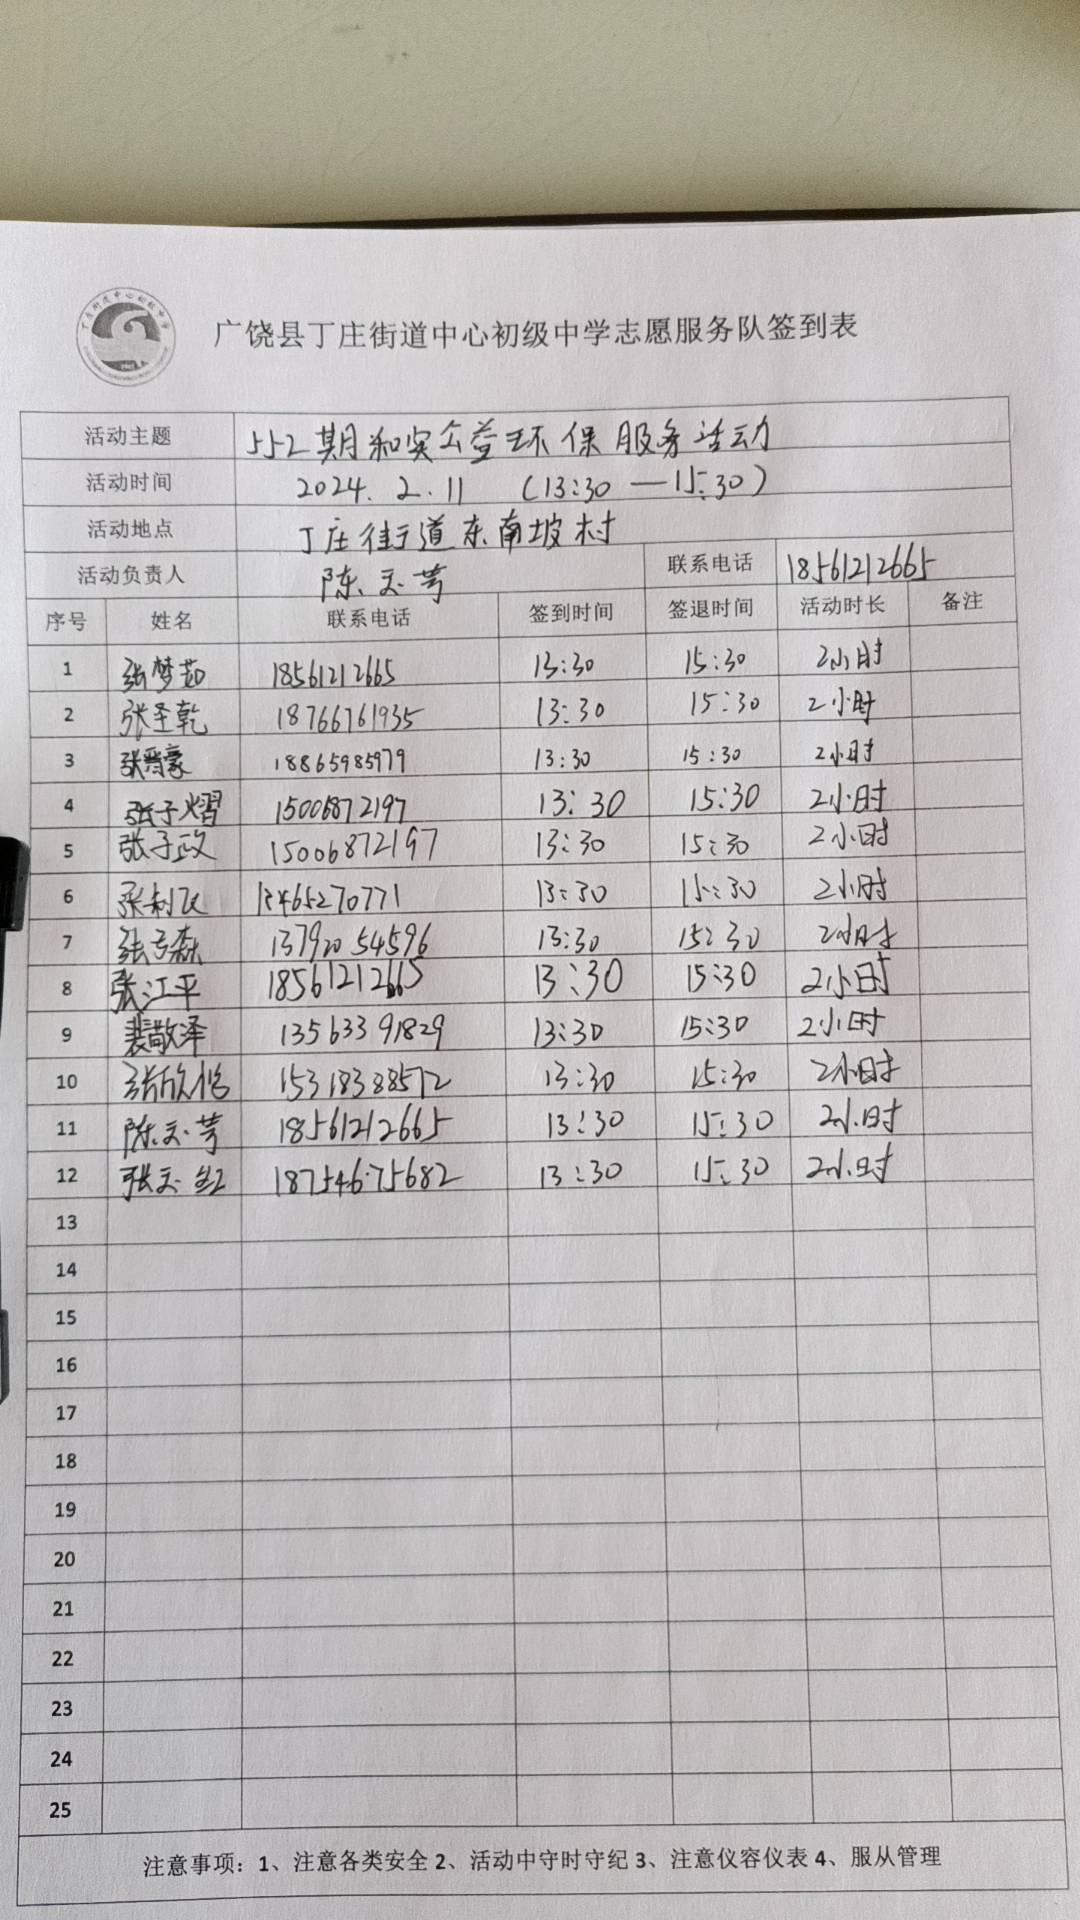 广饶县丁庄街道中心初级中学志愿服务队签到表
活动主题 552期和实公益环保服务活动
活动时间 2024.2.11 (13:30—15:30)
活动地点 丁庄街道东南坡村
活动负责人 陈玉芳 联系电话 18561212665
序号 姓名 联系电话 签到时间 签退时间 活动时长 备注
1 张梦茹 18561212665 13:30 15:30 2小时
2 张圣乾 18766761935 13:30 15:30 2小时
3 张晋豪 18865985979 13:30 15:30 2小时
4 张子熠 15006872197 13:30 15:30 2小时
5 张子政 15006872197 13:30 15:30 2小时
6 张利民 13465270771 13:30 15:30 2小时
7 张 森 13792054596 13:30 15:30 2小时
8 张江平 18561212665 13:30 15:30 2小时
9 裴敬泽 13563391829 13:30 15:30 2小时
10 张欣悦 15318388572 13:30 15:30 2小时
11 陈玉芳 18561212665 13:30 15:30 2小时
12 张玉红 18754675682 13:30 15:30 2小时
13
14
15
16
17
18
19
20
21
22
23
24
25
注意事项：1、注意各类安全 2、活动中守时守纪 3、注意仪容仪表 4、服从管理